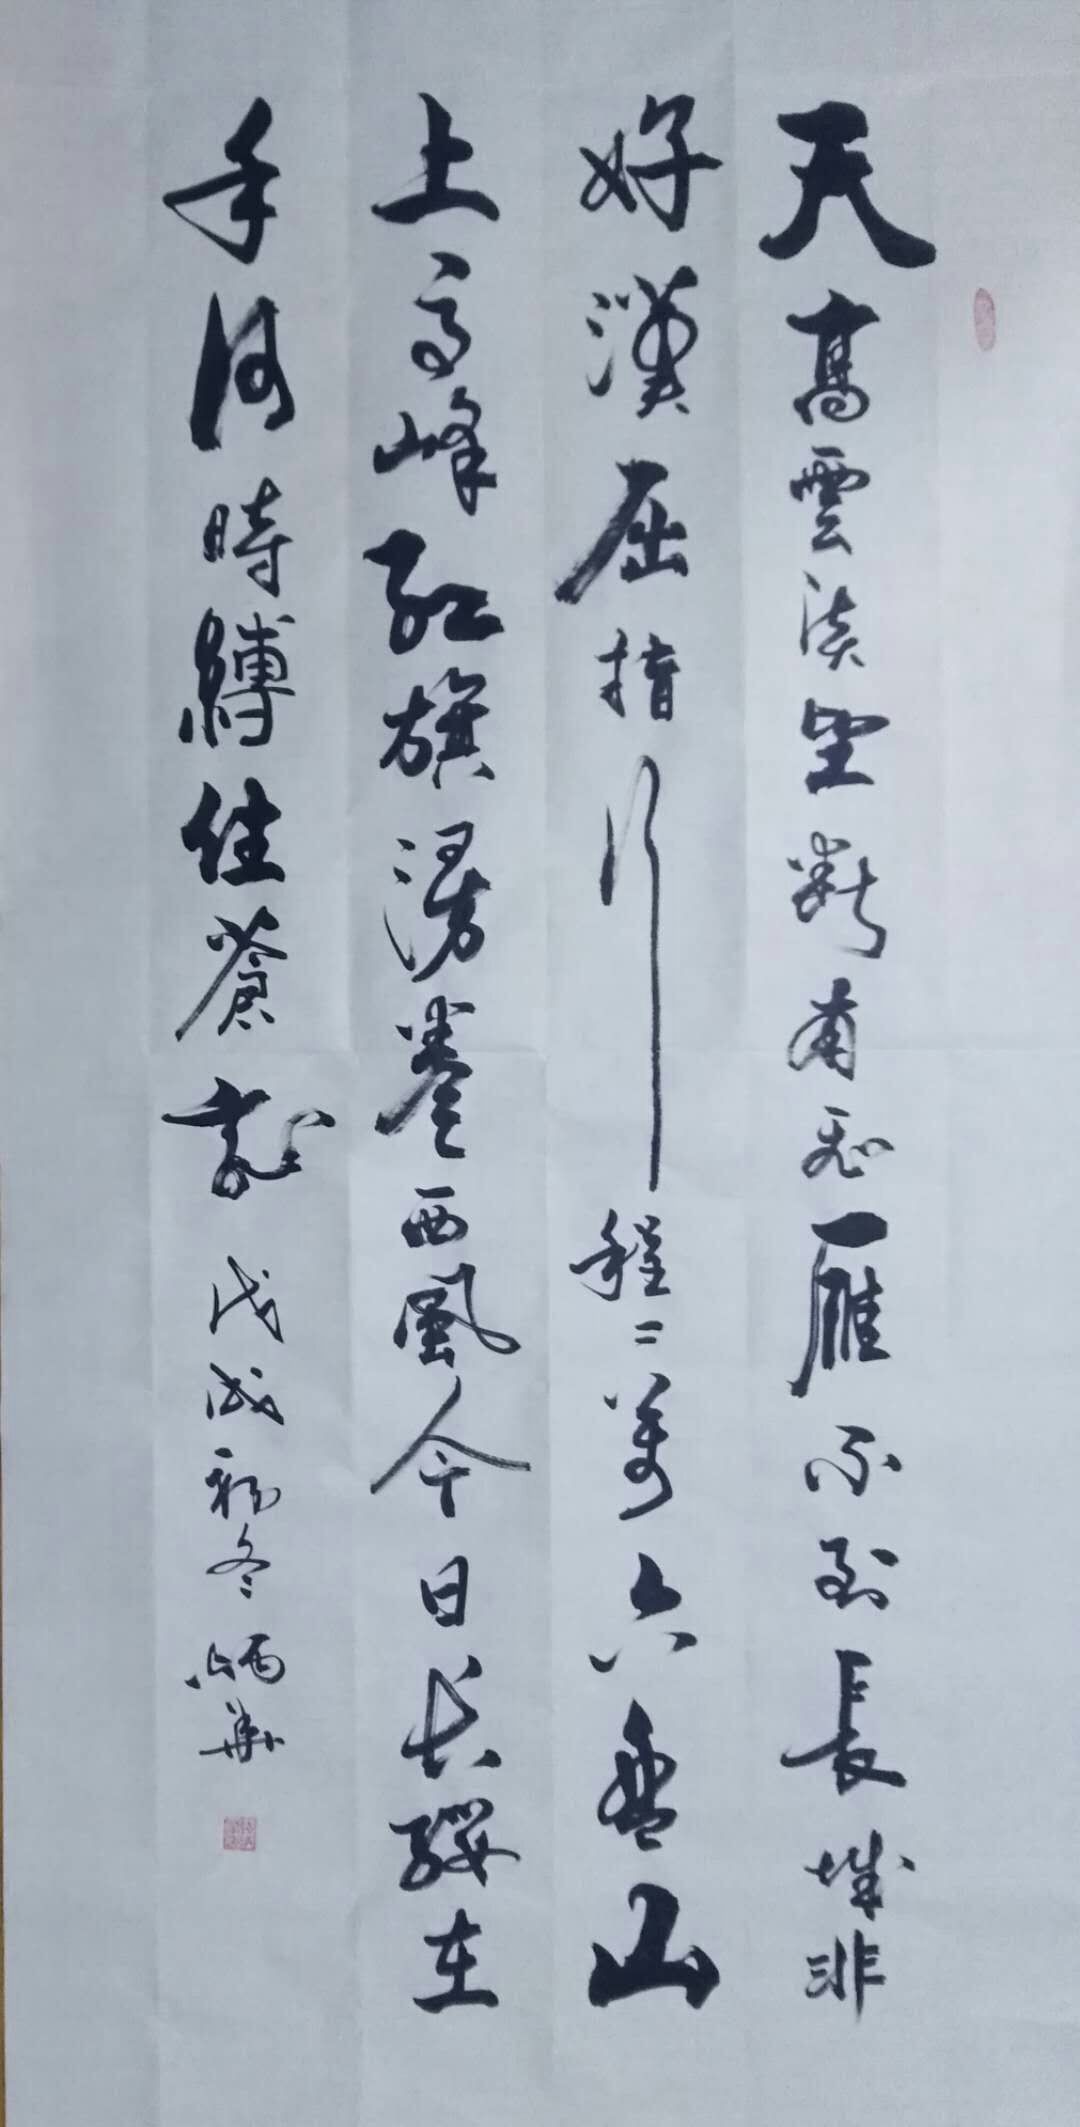 天高雲淡望斷南飛雁不到長城非
好漢屈指行程二萬六盤山
上高峰紅旗漫卷西風今日長纓在
手何時縛住蒼龍 戊戌初冬 炳華